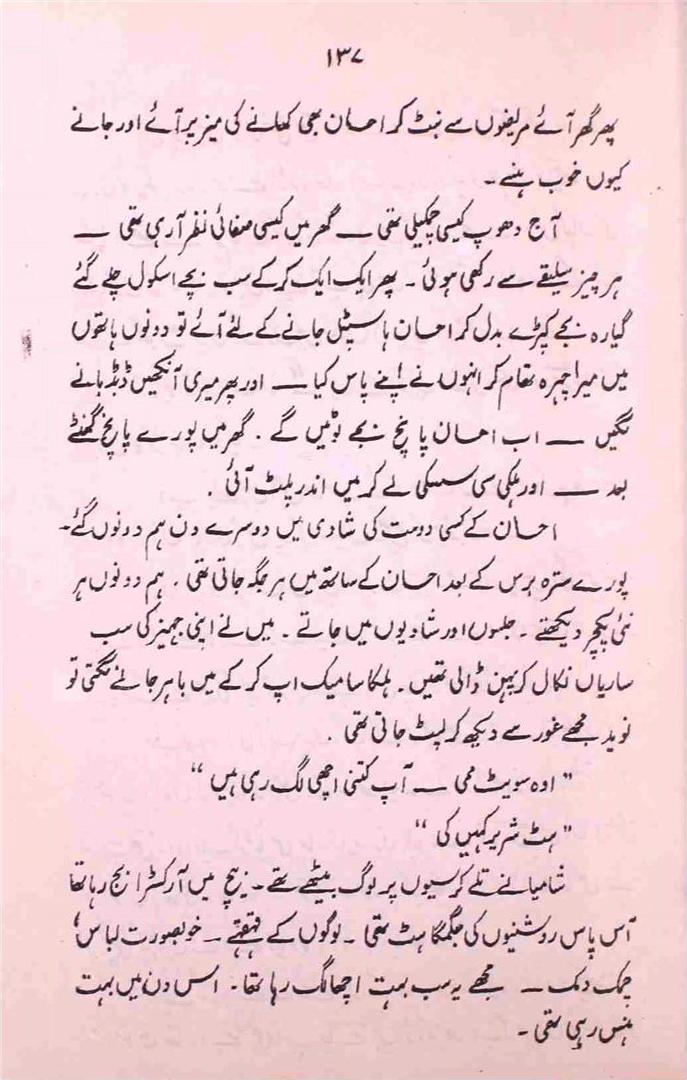 ۱۳۷
پھر گھر آئے مریضوں سے نبٹ کر احسان بھی کھانے کی میز پر آئے اور جانے
کیوں خوب ہنسے ۔
آج دھوپ کیسی چمکیلی تھی ــــ گھر میں کیسی صفائی نظر آ رہی تھی ــــ
ہر چیز سلیقے سے رکھی ہوئی ۔ پھر ایک ایک کر کے سب بچے اسکول چلے گئے
گیارہ بجے کپڑے بدل کر احسان ہاسپٹل جانے کے لئے آئے تو دونوں ہاتھوں
میں میرا چہرہ تھام کر انہوں نے اپنے پاس کیا ــــ اور پھر میری آنکھیں ڈبڈبانے
لگیں ــــ اب احسان پانچ بجے لوٹیں گے . گھر میں پورے پانچ گھنٹے
بعد ــــ اور ہلکی سی سسکی لے کر میں اندر پلٹ آئی .
احسان کے کسی دوست کی شادی میں دوسرے دن ہم دونوں گئے ۔
پورے سترہ برس کے بعد احسان کے ساتھ میں ہر جگہ جاتی تھی . ہم دونوں ہر
نئی پکچر دیکھتے ۔ جلسوں اور شادیوں میں جاتے ۔ میں نے اپنی جہیز کی سب
ساریاں نکال کر پہن ڈالی تھیں ۔ ہلکا سا میک اپ کر کے میں باہر جانے لگتی تو
نوید مجھے غور سے دیکھ کر لپٹ جاتی تھی .
" اوہ سویٹ ممی ــــ آپ کتنی اچھی لگ رہی ہیں "
" ہٹ شریر کہیں کی "
شامیانے تلے کرسیوں پر لوگ بیٹھے تھے ۔ بیچ میں آرکسٹرا بج رہا تھا
آس پاس روشنیوں کی جگمگاہٹ تھی ۔ لوگوں کے قہقہے ۔ خوبصورت لباس ،
چمک دمک ــــ مجھے یہ سب بہت اچھا لگ رہا تھا ۔ اس دن میں بہت
ہنس رہی تھی ۔